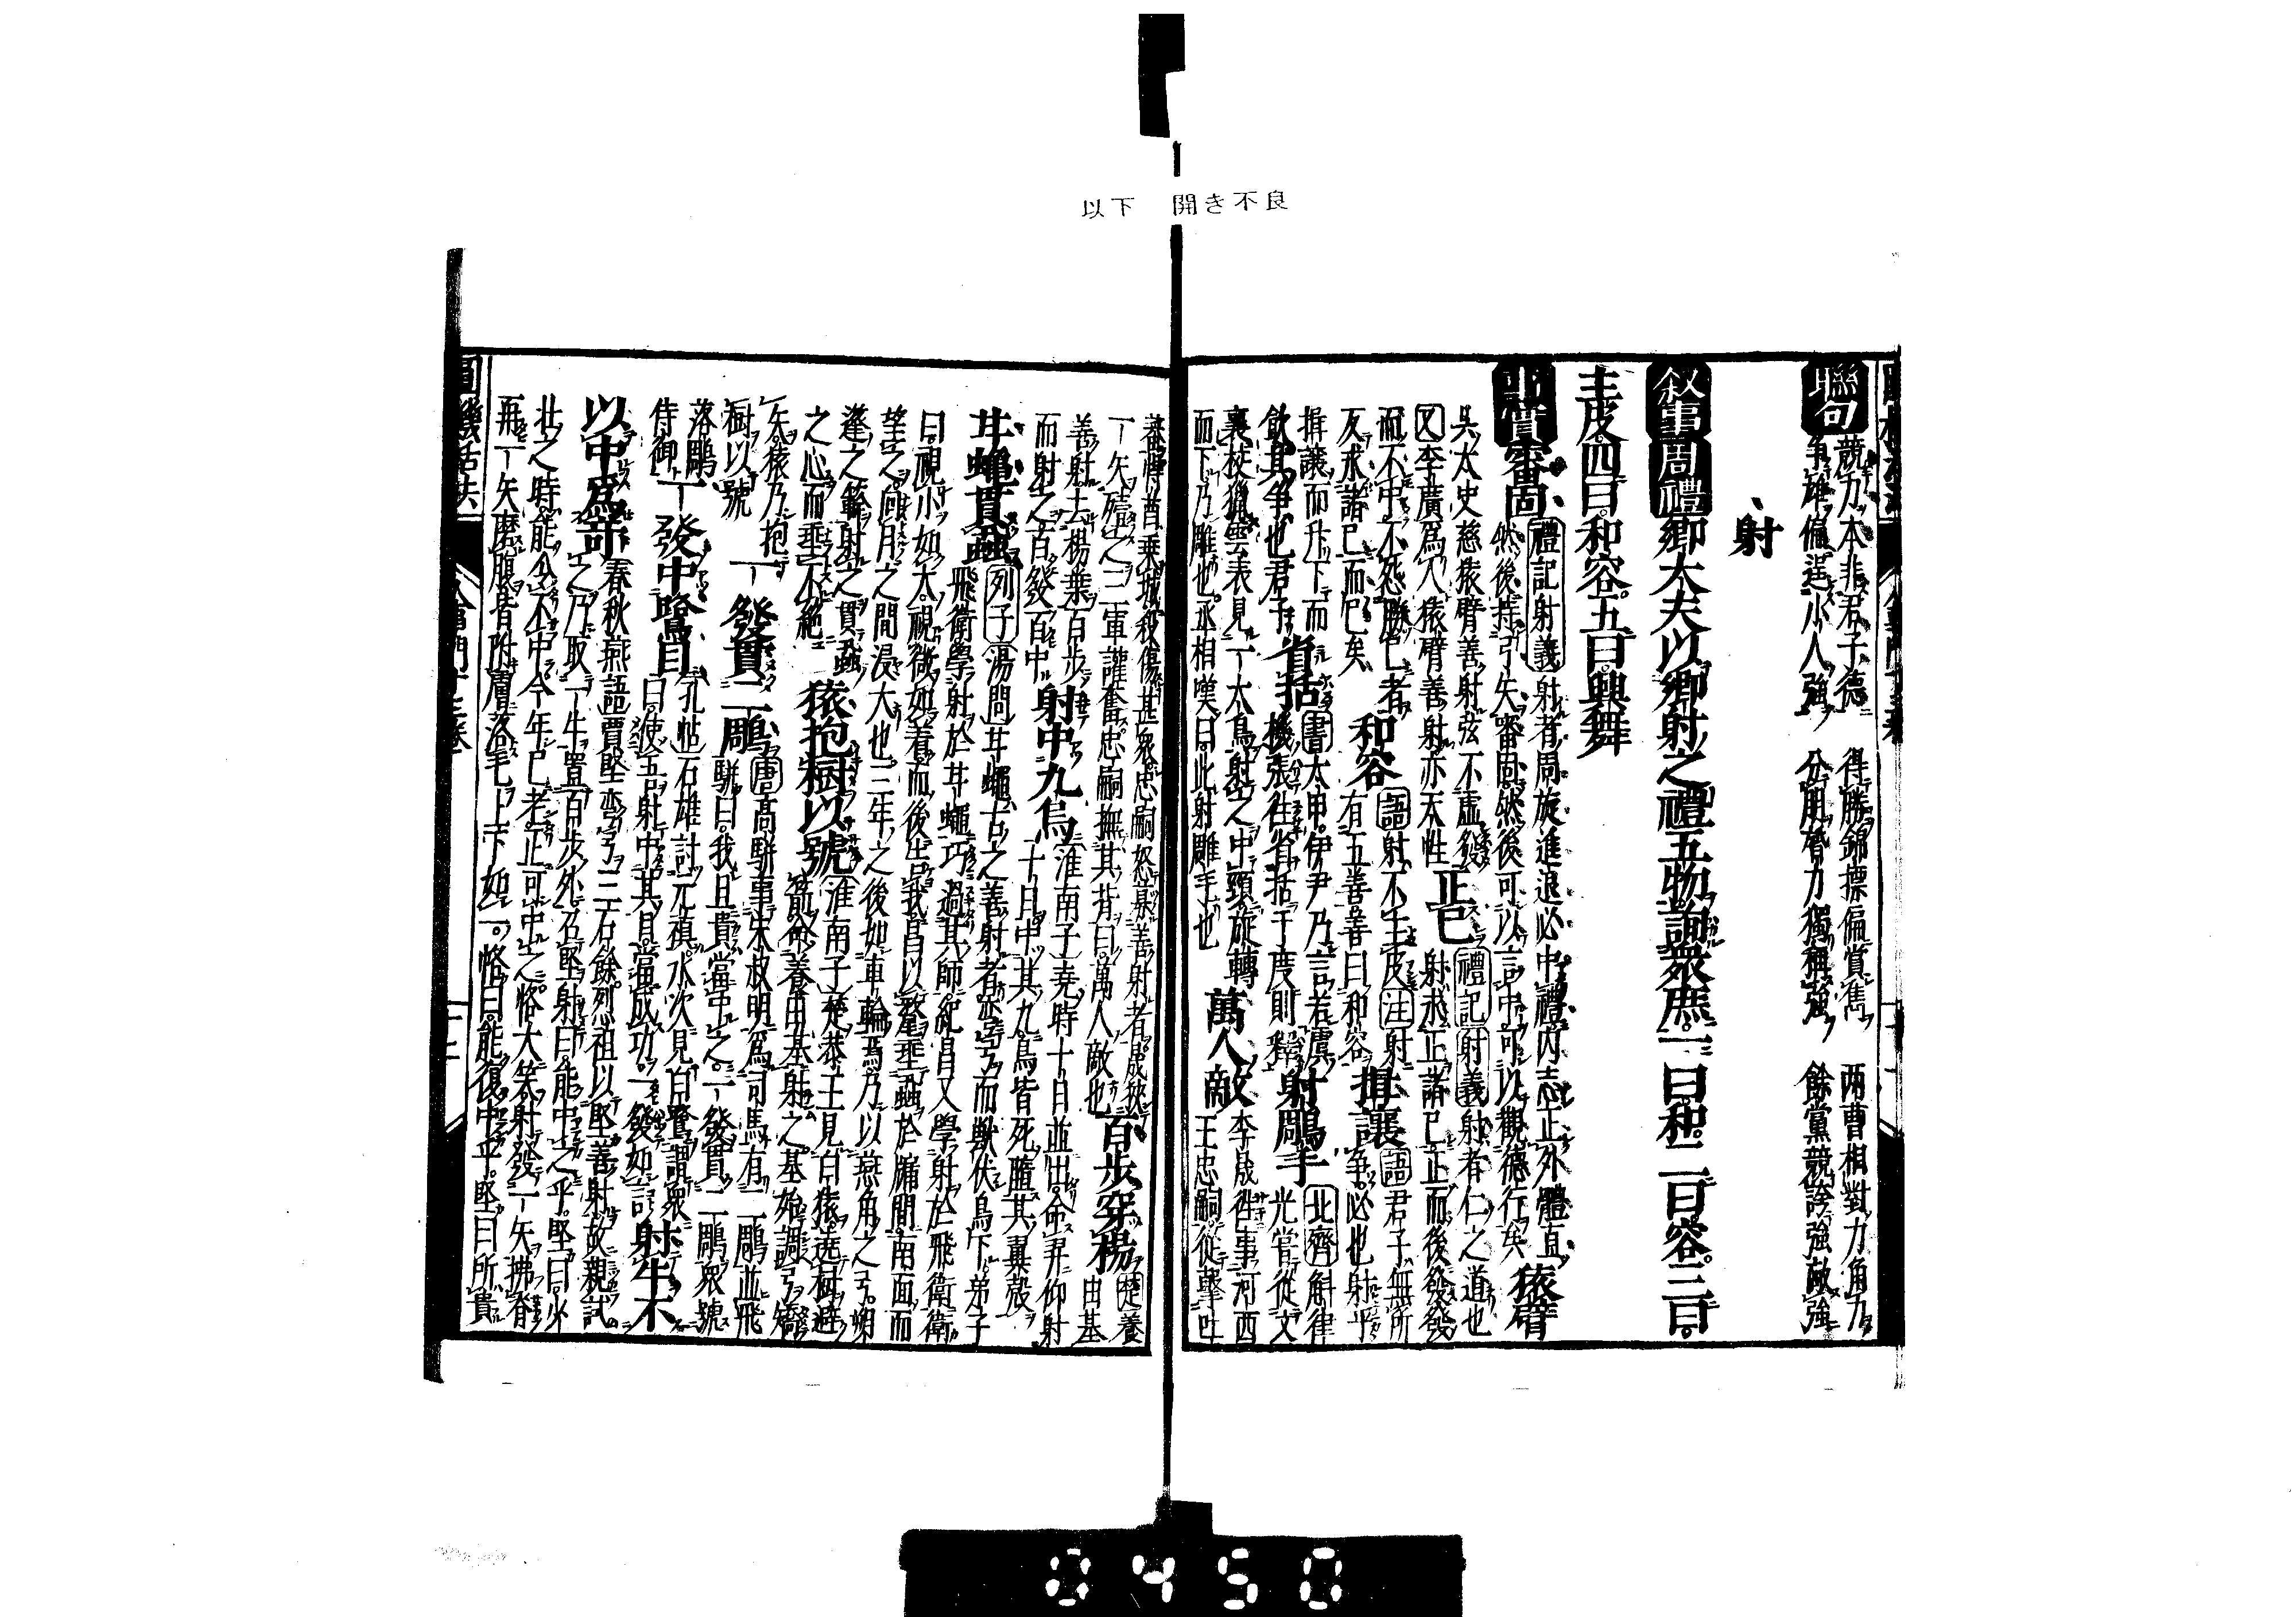 以下　開き不良
聯句
競力本非君子德　得勝錦標偏賞雋　两曹相對力角力
争雄偏逞小人強　分朋膂力獨稱強　餘黨競誇強敵強
射
叙事 周禮 鄉大夫以鄉射之禮五物詢衆庶一曰和二曰容三曰
主皮四曰和容五曰興舞
事實 審固 禮記射義 射者周旋進退必中禮内志正外體直
然後持弓矢審固然後可以言中可以觀德行矣 猿臂
吳太史慈猿臂善射弦不虚發
又李廣為人猿臂善射亦天性 正已 禮記射義 射者仁之道也
射求正諸已正而後發發
而不中不怨勝已者
反求諸已而已矣 和容 語射不主皮注射
有五善善曰和容 揖讓 語君子無所
争必也射乎
揖讓而升下而
飲其争也君子 省括 書太甲伊尹乃言若虞
機張往省括于度則釋 射鵰手 北齊斛律
光嘗從文
襄校獵雲表見一大鳥射之中頸旋轉
而下乃雕也丞相嘆曰此射雕手也 萬人敵 李晟往事河西
王忠嗣從擊吐
蕃悍酋乗城殺傷甚衆忠嗣怒募善射者晟挾
一矢殪之三軍讙奮忠嗣撫其背曰萬人敵也 百步穿楊 楚養
由基
善射去楊葉百步
而射之百發百中 射中九烏 淮南子堯時十日並出命羿仰射
十日中其九烏皆死墮其翼殼
甘蠅貫蝨 列子湯問甘蠅古之善射者彀弓而獸伏鳥下弟子
飛衛學射於甘蠅巧過其師紀昌又學射於飛衛衛
曰視小如大視微如著而後告我昌以氂垂蝨於牖間南面而
望之旬月之間浸大也三年之後如車輪焉乃以燕角之弓朔
蓬之簳射之貫蝨
之心而垂不絶 猿抱樹以號 淮南子楚恭王見白猿遶樹避
箭命養由基射之基始調弓矯
矢猿乃抱
樹以號 一發貫二鵰 唐高駢事朱叔明為司馬有二鵰並飛
駢曰我且貴當中之一發貫二鵰衆號
落鵰
侍御 一發中鷺目 孔帖石雄討元禛水次見白鷺謂衆
曰使吾射中其目當成功一發如言 射牛不
以中為竒 春秋燕語賈堅彎弓三石餘烈祖以堅善射故親試
之乃取一牛置百步外召堅射曰能中之乎堅曰少
壯之時能令不中今年已老正可中之恪大笑射發一矢拂脊
再一矢磨腹皆附膚落毛上下如一恪曰能復中乎堅曰所貴
0450